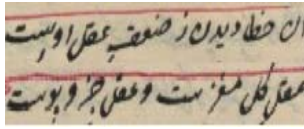 آن خطا دیدن ز ضعف عقل اوست
عقل کل مغز ست و عقل جزو پوست